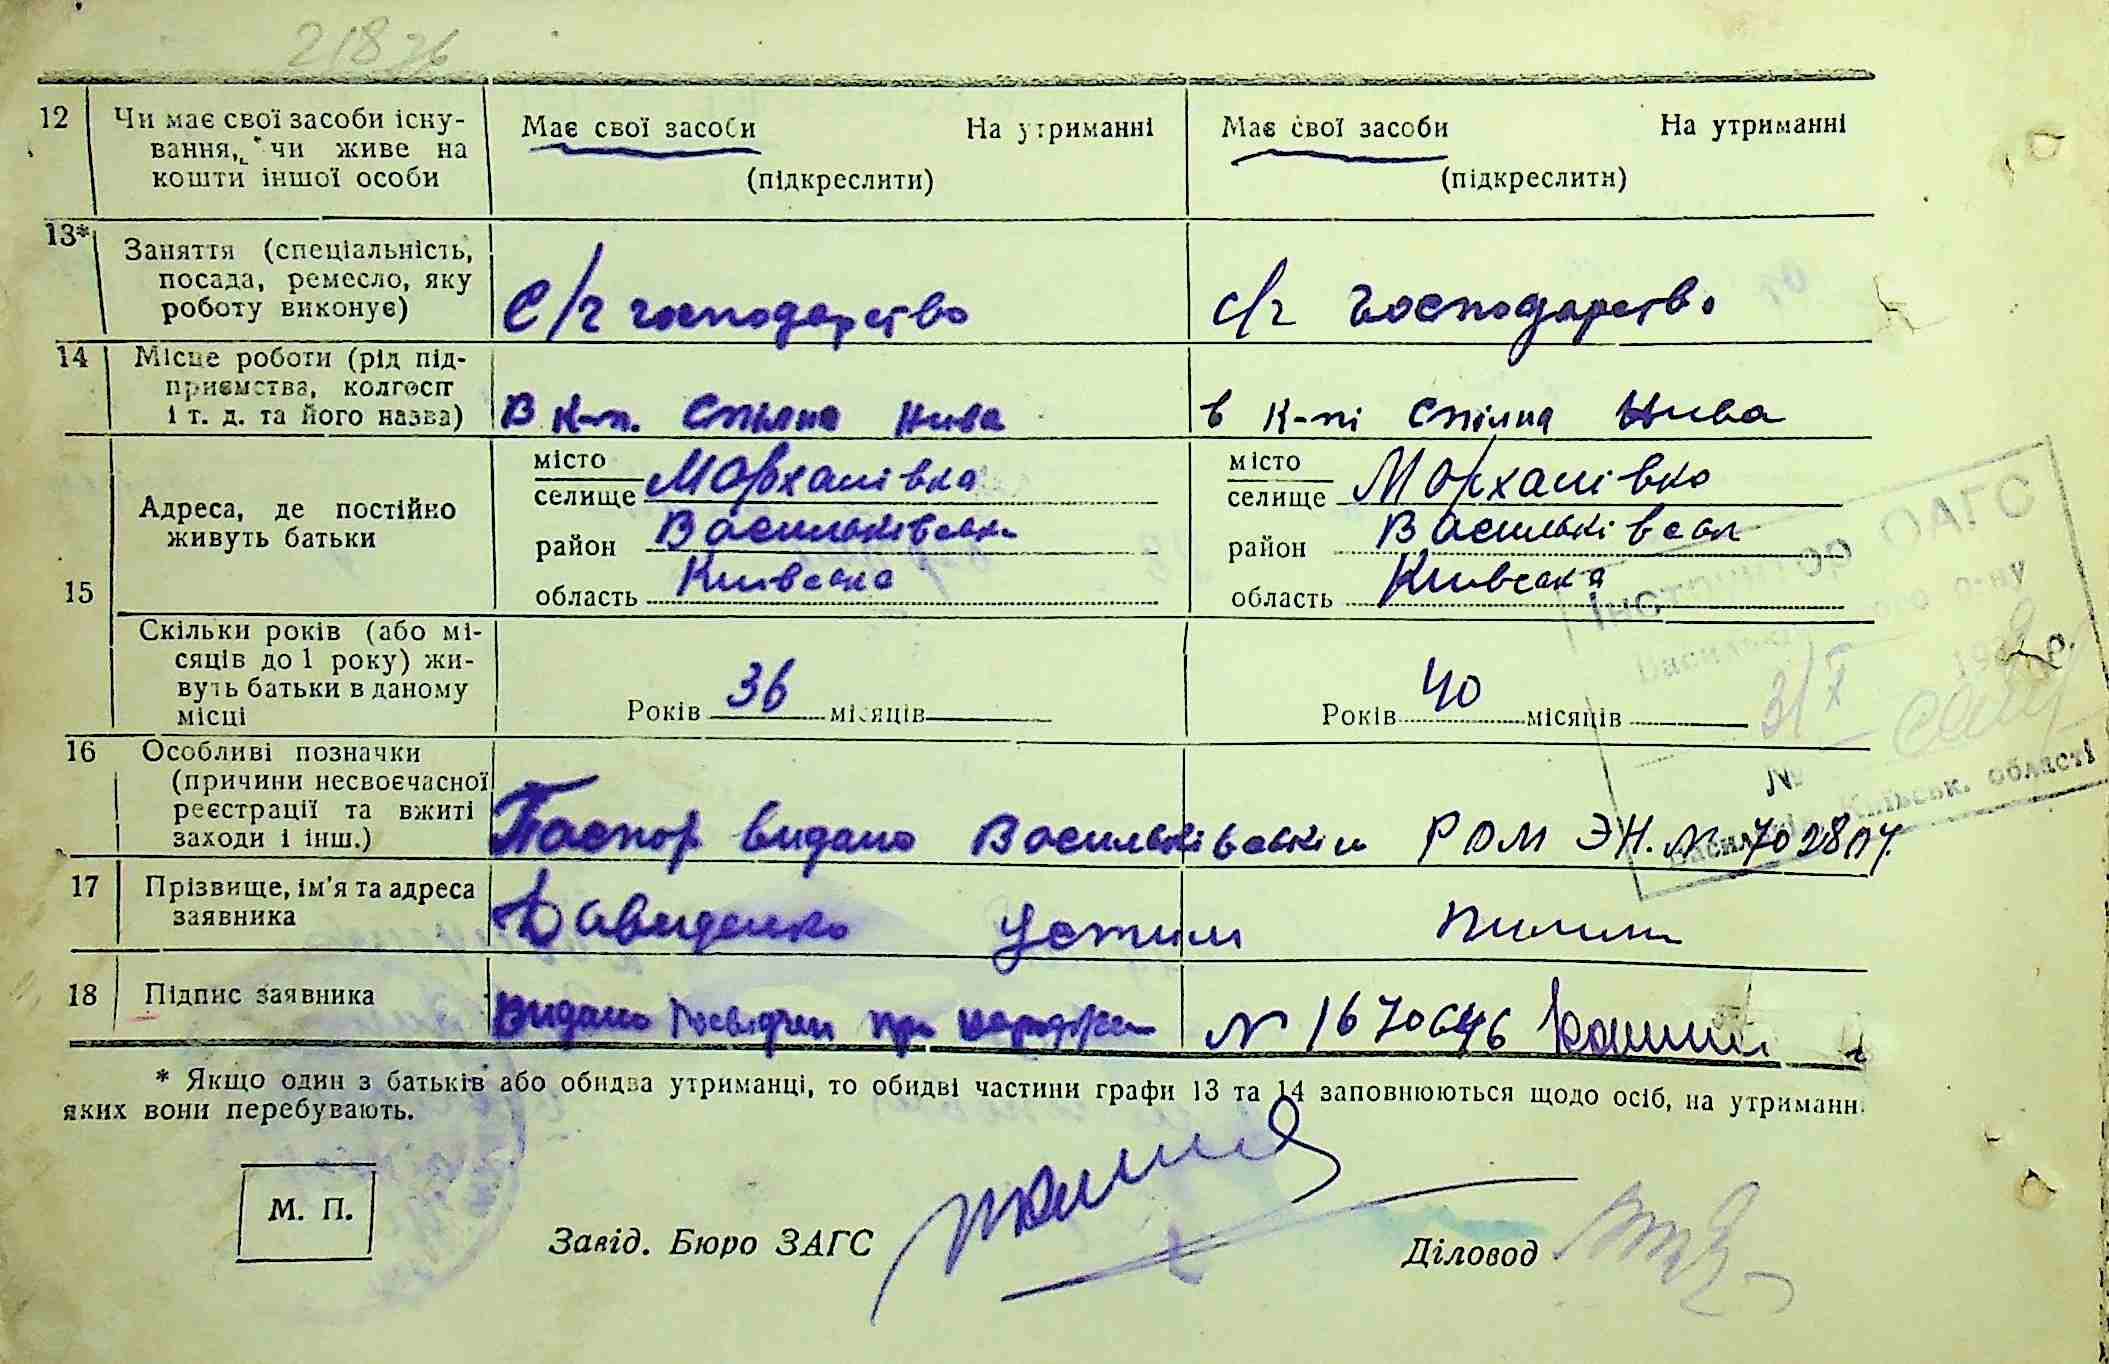 21836
12 Чи має свої засоби існу-
вання, чи живе на
кошти іншої особи
Має свої засоби На утриманні
(підкреслити)
Має свої засоби На утриманні
(підкреслити)
13* Заняття (спеціальність,
посада, ремесло, яку
роботу виконує)
С/г господарство
с/г господарство
14 Місце роботи (рід під-
приємства, колгосп
і т. д. та його назва)
В к-п. Спільна Нива
в к-пі Спілна Нива
15
Адреса, де постійно
живуть батьки
місто
селище Мархалівка
район Васильківськ
область Київська
місто
селище Мархалівка
район Васильківськ
область Київська
Скільки років (або мі-
сяців до 1 року) жи-
вуть батьки в даному
місці
Років 36 місяців
Років 40 місяців
16 Особливі позначки
(причини несвоєчасної
реєстрації та вжиті
заходи і інш.)
Паспор видано Васильківським РОМ ЭН. №
17 Прізвище, ім'я та адреса
заявника
Давиденко Устим Пилип
18 Підпис заявника
Видано посвідчен про народжен № 1670646
* Якщо один з батьків або обидва утриманці, то обидві частини графи 13 та 14 заповнюються щодо осіб, на утриманн
яких вони перебувають.
М. П.
Завід. Бюро ЗАГС
Діловод
Інспектор ОАГС
р-ну
31/X 19 р.
№
Київськ. області